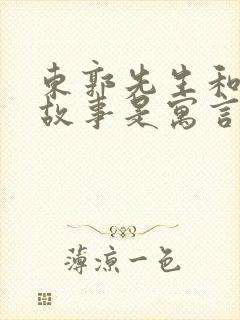 东郭先生和
故事是寓言
薄凉一色